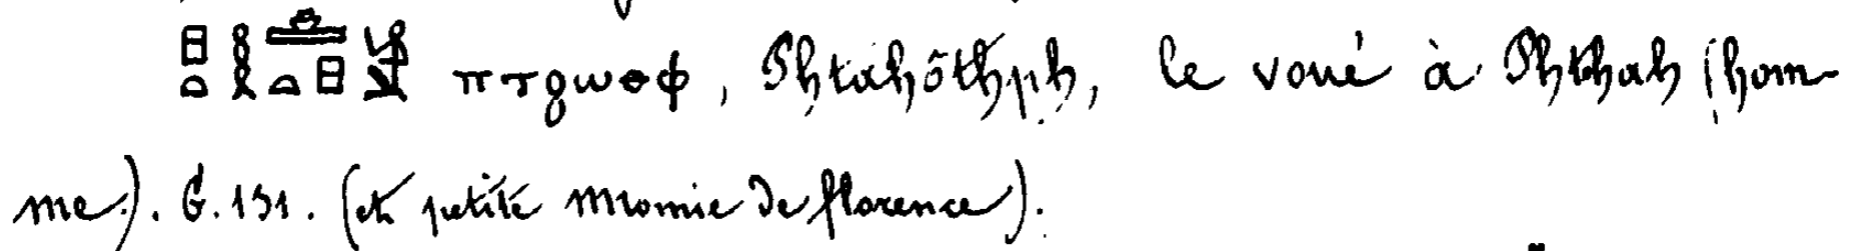 𓊪𓏏𓎛𓊵𓏏𓊪 ⲡⲧϩⲱⲑⲫ, Phtahôthph, le voué à Phthah (hom-
me). G. 131. (et petite momie de florence).